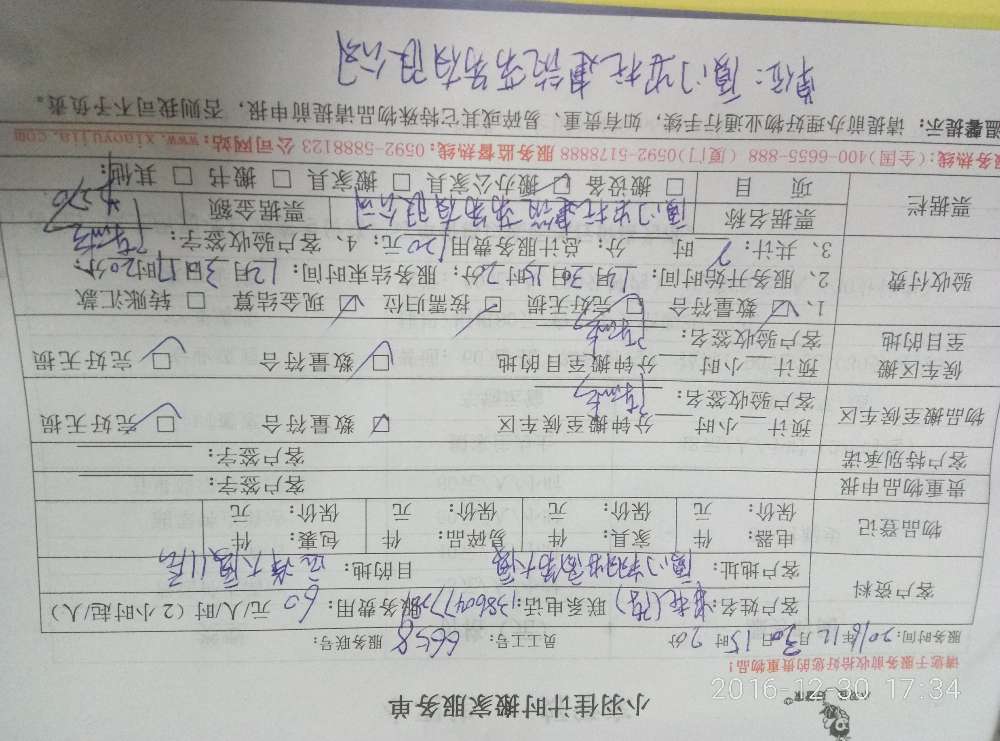 小羽佳计时搬家服务单
2016-12-30 17:34
请您于服务前收拾好您的贵重物品!
服务时间: 2016年12月30日15时 分 员工工号: 6658 服务联号:
客户资料
客户姓名: 联系电话: 服务费用: 60 元/人/时 (2小时起/人)
客户地址: 目的地:
物品登记
电器: 件 家具: 件 易碎品: 件 包裹: 件
保价: 元 保价: 元 保价: 元 保价: 元
贵重物品申报 客户签字:
客户特别承诺 客户签字:
物品搬至候车区 预计 小时 分钟搬至候车区 ☑ 数量符合 ☑ 完好无损
客户验收签名:
候车区搬至目的地 预计 小时 分钟搬至目的地 ☑ 数量符合 ☑ 完好无损
客户验收签名:
验收付费
1、☑ 数量符合 ☑ 完好无损 按需归位 ☑ 现金结算 □ 转账汇款
2、服务开始时间: 月30日 时20分: 服务结束时间: 12月3 日17时20分:
3、共计: 2 时 分: 总计服务费用 元: 4、客户验收签字:
票据栏
票据名称 票据金额
项 目 □ 搬设备 ☑ 搬办公家具 □ 搬家具 □ 搬书 □ 其他:
服务热线:(全国)400-6655-888 (厦门)0592-5178888 服务监督热线: 0592-5888123 公司网站: www.xiaoyujia.com
温馨提示: 请提前办理好物业通行手续, 如有贵重、易碎或其它特殊物品请提前申报, 否则我司不予负责。
单位: 厦门 建筑劳务有限公司